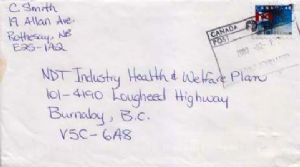 C Smith
19 Allan Ave.
Rothesay, NB
E2S-1A2
CANADA
POST
NDT Industry Health & Welfare Plan
101-4190 Lougheed Highway
Burnaby, B.C.
V5C-6A8